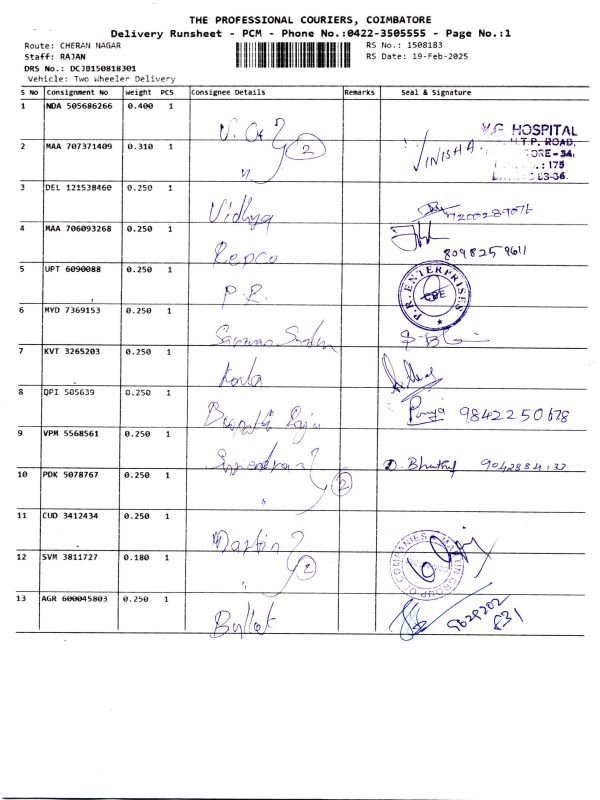 THE PROFESSIONAL COURIERS, COIMBATORE
Delivery Runsheet - PCM - Phone No.:0422-3505555 - Page No.:1
Route: CHERAN NAGAR RS No.: 1508183
Staff: RAJAN RS Date: 19-Feb-2025
DRS No.: DCJB150818301
Vehicle: Two Wheeler Delivery
S No Consignment No Weight PCS Consignee Details Remarks Seal & Signature
1 NDA 505686266 0.400 1
V.G. HOSPITAL
2 MAA 707371409 0.310 1 " 2 VINISHA T.P. ROAD,
ORE - 34.
: 175
3 DEL 121538460 0.250 1 Vidhya 7200289076
4 MAA 706093268 0.250 1 Repco 8098259611
5 UPT 6090088 0.250 1 P.R. P.R. ENTERPRISES CBE
6 MYD 7369153 0.250 1
7 KVT 3265203 0.250 1
8 QPI 505639 0.250 1 Raju 9842250678
9 VPM 5568561 0.250 1 Surendran
10 PDK 5078767 0.250 1 " 2
11 CUD 3412434 0.250 1 Martin
12 SVM 3811727 0.180 1 " 2 MARTIN GROUP OF COMPANIES
13 AGR 600045803 0.250 1 Bullet 9629202
831